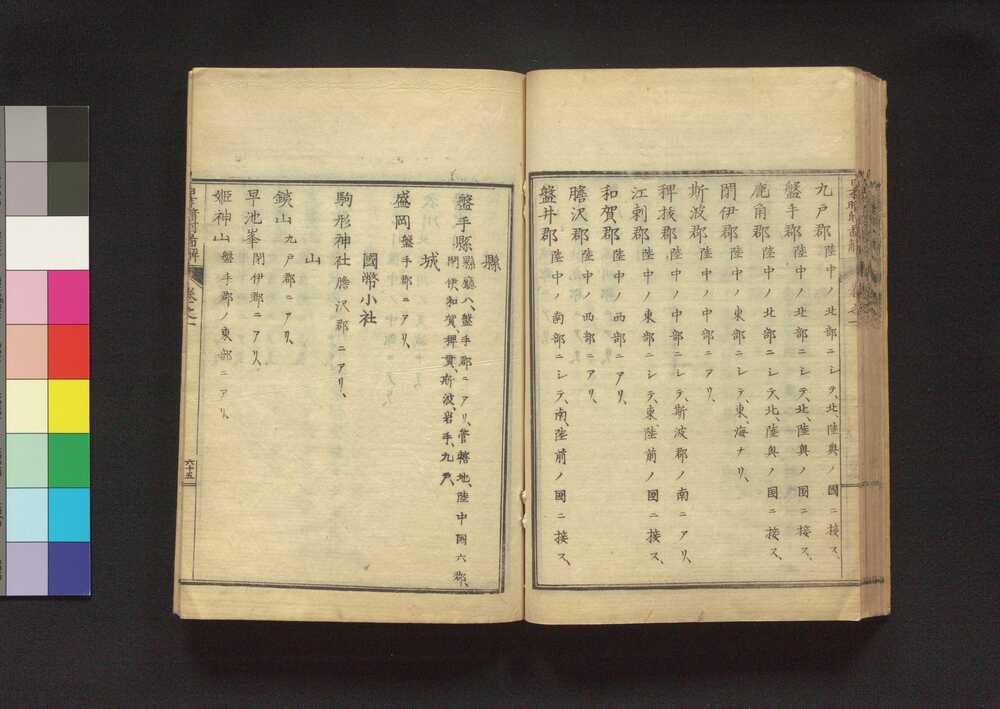 九戸郡陸中ノ北部ニシテ、北、陸奥ノ國ニ接ス、
盤手郡陸中ノ北部ニシテ、北、陸奥ノ國ニ接ス、
鹿角郡陸中ノ北部ニシテ、北、陸奥ノ國ニ接ス、
閉伊郡陸中ノ東部ニシテ、東、海ナリ、
斯波郡陸中ノ中部ニアリ、
稗抜郡陸中ノ中部ニシテ、斯波郡ノ南ニアリ、
江刺郡陸中ノ東部ニシテ、東、陸前ノ國ニ接ス、
和賀郡陸中ノ西部ニアリ、
膽沢郡陸中ノ西部ニアリ、
盤井郡陸中ノ南部ニシテ、南、陸前ノ國ニ接ス、
縣
盤手縣縣廳ハ、盤手郡ニアリ、管轄地、陸中國六郡、
閉伊、和賀、稗貫、斯波、岩手、九戸、
城
盛岡盤手郡ニアリ、
國幣小社
駒形神社膽沢郡ニアリ、
山
鏡山九戸郡ニアリ、
早池峯閉伊郡ニアリ、
姫神山盤手郡ノ東部ニアリ、
卷之一
六十五